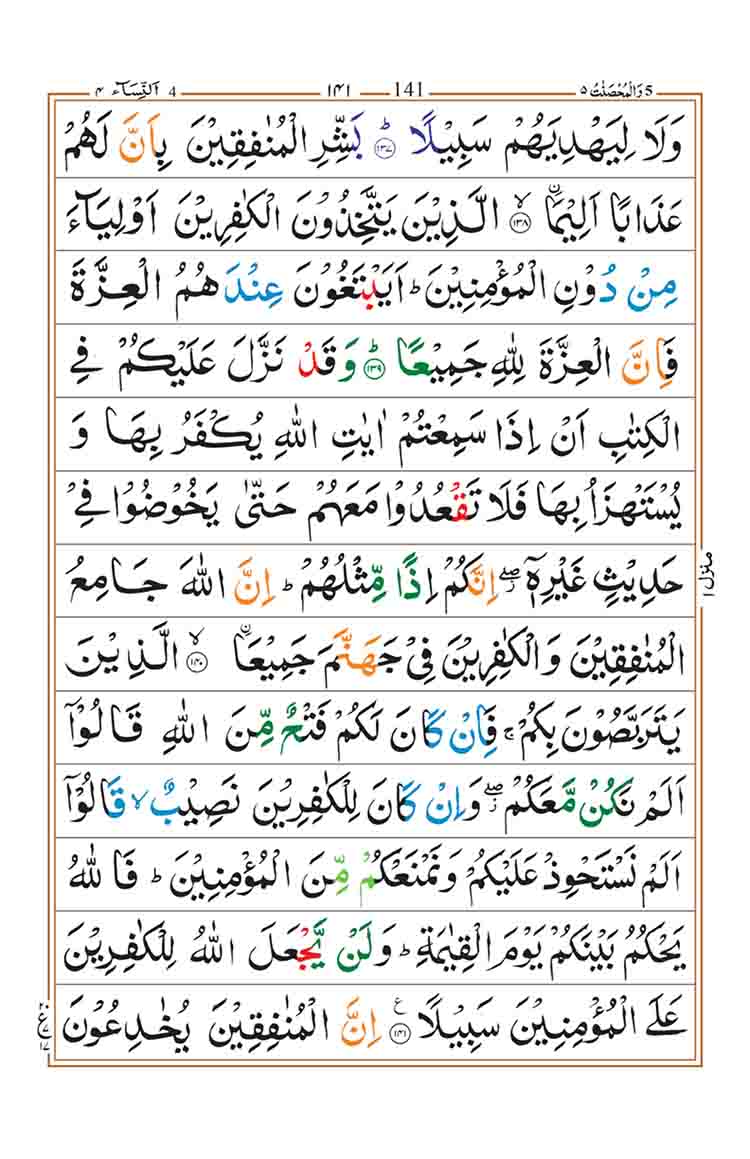 وَالْمُحْصَنٰتُ ٥ 5 141 ١٤١ 4 اَلنِّسَآء ٤
وَلَا لِيَهْدِيَهُمْ سَبِيْلًا ؕ ﴿۱۳۷﴾ بَشِّرِ الْمُنٰفِقِيْنَ بِاَنَّ لَهُمْ
عَذَابًا اَلِيْمَا ۙ ﴿۱۳۸﴾ الَّذِيْنَ يَتَّخِذُوْنَ الْكٰفِرِيْنَ اَوْلِيَآءَ
مِنْ دُوْنِ الْمُؤْمِنِيْنَ ؕ اَيَبْتَغُوْنَ عِنْدَهُمُ الْعِزَّةَ
فَاِنَّ الْعِزَّةَ لِلّٰهِ جَمِيْعًا ؕ ﴿۱۳۹﴾ وَقَدْ نَزَّلَ عَلَيْكُمْ فِي
الْكِتٰبِ اَنْ اِذَا سَمِعْتُمْ اٰيٰتِ اللّٰهِ يُكْفَرُ بِهَا وَ
يُسْتَهْزَاُ بِهَا فَلَا تَقْعُدُوْا مَعَهُمْ حَتّٰى يَخُوْضُوْا فِيْ
حَدِيْثٍ غَيْرِهٖٓ ۖ اِنَّكُمْ اِذًا مِّثْلُهُمْ ؕ اِنَّ اللّٰهَ جَامِعُ
الْمُنٰفِقِيْنَ وَالْكٰفِرِيْنَ فِيْ جَهَنَّمَ جَمِيْعَا ۙ ﴿۱۴۰﴾ الَّذِيْنَ
يَتَرَبَّصُوْنَ بِكُمْ ۚ فَاِنْ كَانَ لَكُمْ فَتْحٌ مِّنَ اللّٰهِ قَالُوْٓا
اَلَمْ نَكُنْ مَّعَكُمْ ۖ وَاِنْ كَانَ لِلْكٰفِرِيْنَ نَصِيْبٌ ۙ قَالُوْٓا
اَلَمْ نَسْتَحْوِذْ عَلَيْكُمْ وَنَمْنَعْكُمْ مِّنَ الْمُؤْمِنِيْنَ ؕ فَاللّٰهُ
يَحْكُمُ بَيْنَكُمْ يَوْمَ الْقِيٰمَةِ ؕ وَلَنْ يَّجْعَلَ اللّٰهُ لِلْكٰفِرِيْنَ
عَلَى الْمُؤْمِنِيْنَ سَبِيْلًا ﴿۱۴۱﴾ ع اِنَّ الْمُنٰفِقِيْنَ يُخٰدِعُوْنَ
منزل ١